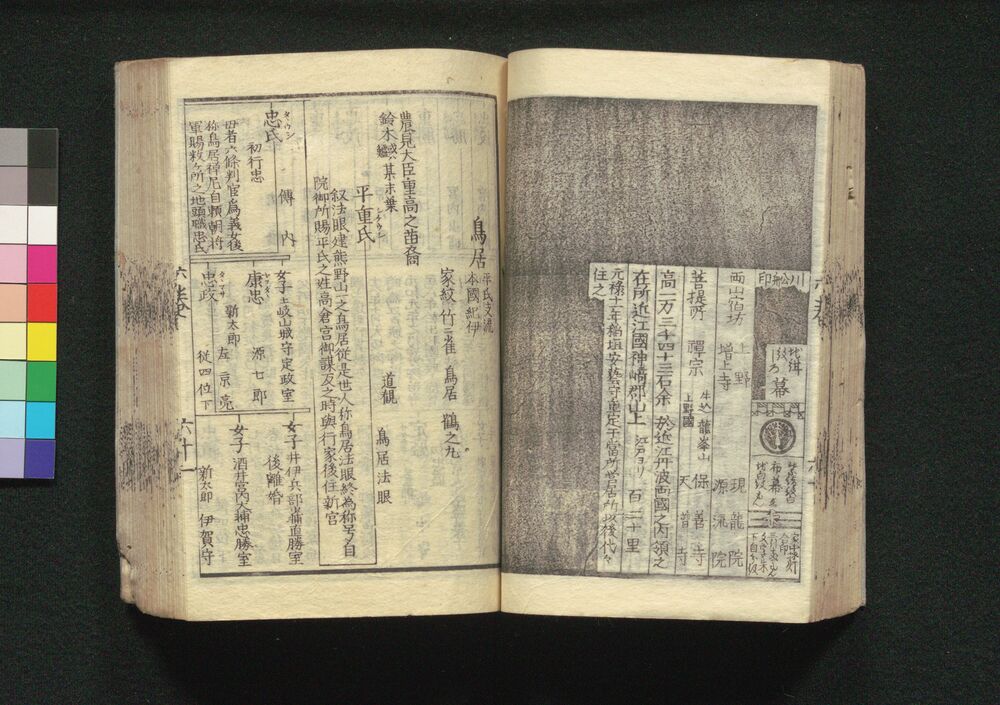 川舩印
幕
両山宿坊
上野
現龍院
増上寺
源流院
菩提所
禪宗
牛込
龍峯山
保善寺
上野國
天増寺
高一万三千四十三石余
於近江丹波両國之内領之
在所近江國神崎郡山上
江戸ヨリ
百二十里
元禄十一年稲垣安藝守重定于當所営居所以後代々
住之
鳥居
平氏支流
本國紀伊
家紋
竹ニ雀
鳥居
鶴之丸
農見大臣重高之苗裔
鈴木
某末葉
道観
鳥居法眼
平重氏
叙法眼建熊野山之鳥居従是世人称鳥居法眼終為称号自
院御所賜平氏之姓高倉宮御謀反之時與行家後住新宮
忠氏
タヾウシ
初行忠
傳内
母者六條判官為義女後
称鳥居禅尼自頼朝将
軍賜数ヶ所之地頭職忠氏
女子
土岐山城守定政室
康忠
源七郎
忠政
タヾマサ
新太郎
左京亮
従四位下
女子
井伊兵部少輔直勝室
後離婚
女子
酒井宮内大輔忠勝室
新太郎
伊賀守
六十一